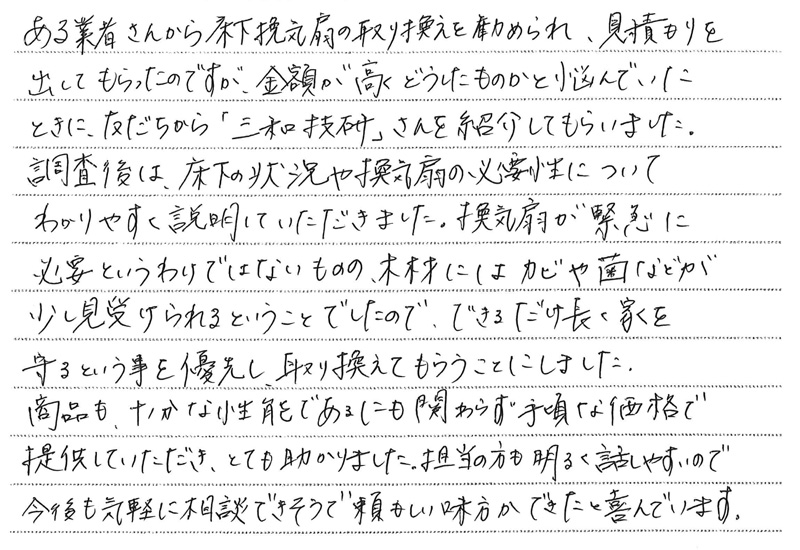 ある業者さんから床下換気扇の取り換えを勧められ、見積もりを
出してもらったのですが、金額が高くどうしたものかと悩んでいた
ときに、友だちから「三和技研」さんを紹介してもらいました。
調査後は、床下の状況や換気扇の必要性について
わかりやすく説明していただきました。換気扇が緊急に
必要というわけではないものの、木材にはカビや菌などが
少し見受けられるということでしたので、できるだけ長く家を
守るという事を優先し、取り換えてもらうことにしました。
商品も、十分な性能であるにも関わらず手頃な価格で
提供していただき、とても助かりました。担当の方も明るく話しやすいので
今後も気軽に相談できそうで頼もしい味方ができたと喜んでいます。